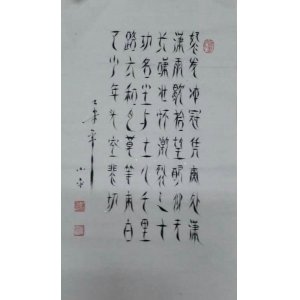 怒发冲冠凭阑处潇
潇雨歇抬望眼仰天
长啸壮怀激烈三十
功名尘与土八千里
路云和月莫等闲白
了少年头空悲切